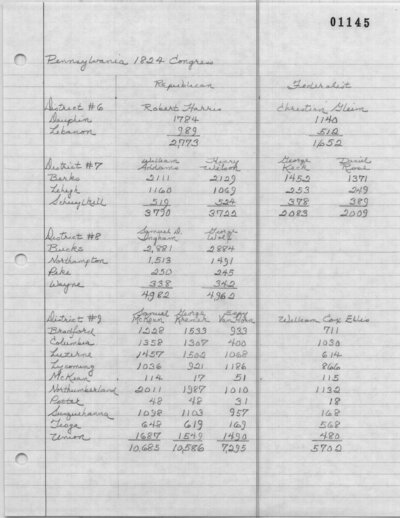 01145
Pennsylvania 1824 Congress
Republican Federalist
District #6 Robert Harris Christian Gleim
Dauphin 1784 1140
Lebanon 989 512
2,773 1,652
District #7 William Addams Henry Wilson George Keck David Road
Berks 2111 2129 1452 1371
Lehigh 1160 1069 253 249
Schuylkill 519 524 378 389
3790 3722 2083 2009
District #8 Samuel D. Ingham George Wolf
Bucks 2,881 2884
Northampton 1,513 1,491
Pike 250 245
Wayne 338 342
4982 4962
District #9 Samuel McKean George Kremer Espy Van Horn William Cox Ellis
Bradford 1228 1533 933 711
Columbia 1358 1307 400 1030
Luzerne 1457 1502 1068 614
Lycoming 1036 921 1186 866
McKean 114 17 51 115
Northumberland 2011 1987 1010 1132
Potter 48 48 31 18
Susquehanna 1098 1103 957 168
Tioga 648 619 169 568
Union 1687 1549 1490 480
10,685 10,586 7295 5702